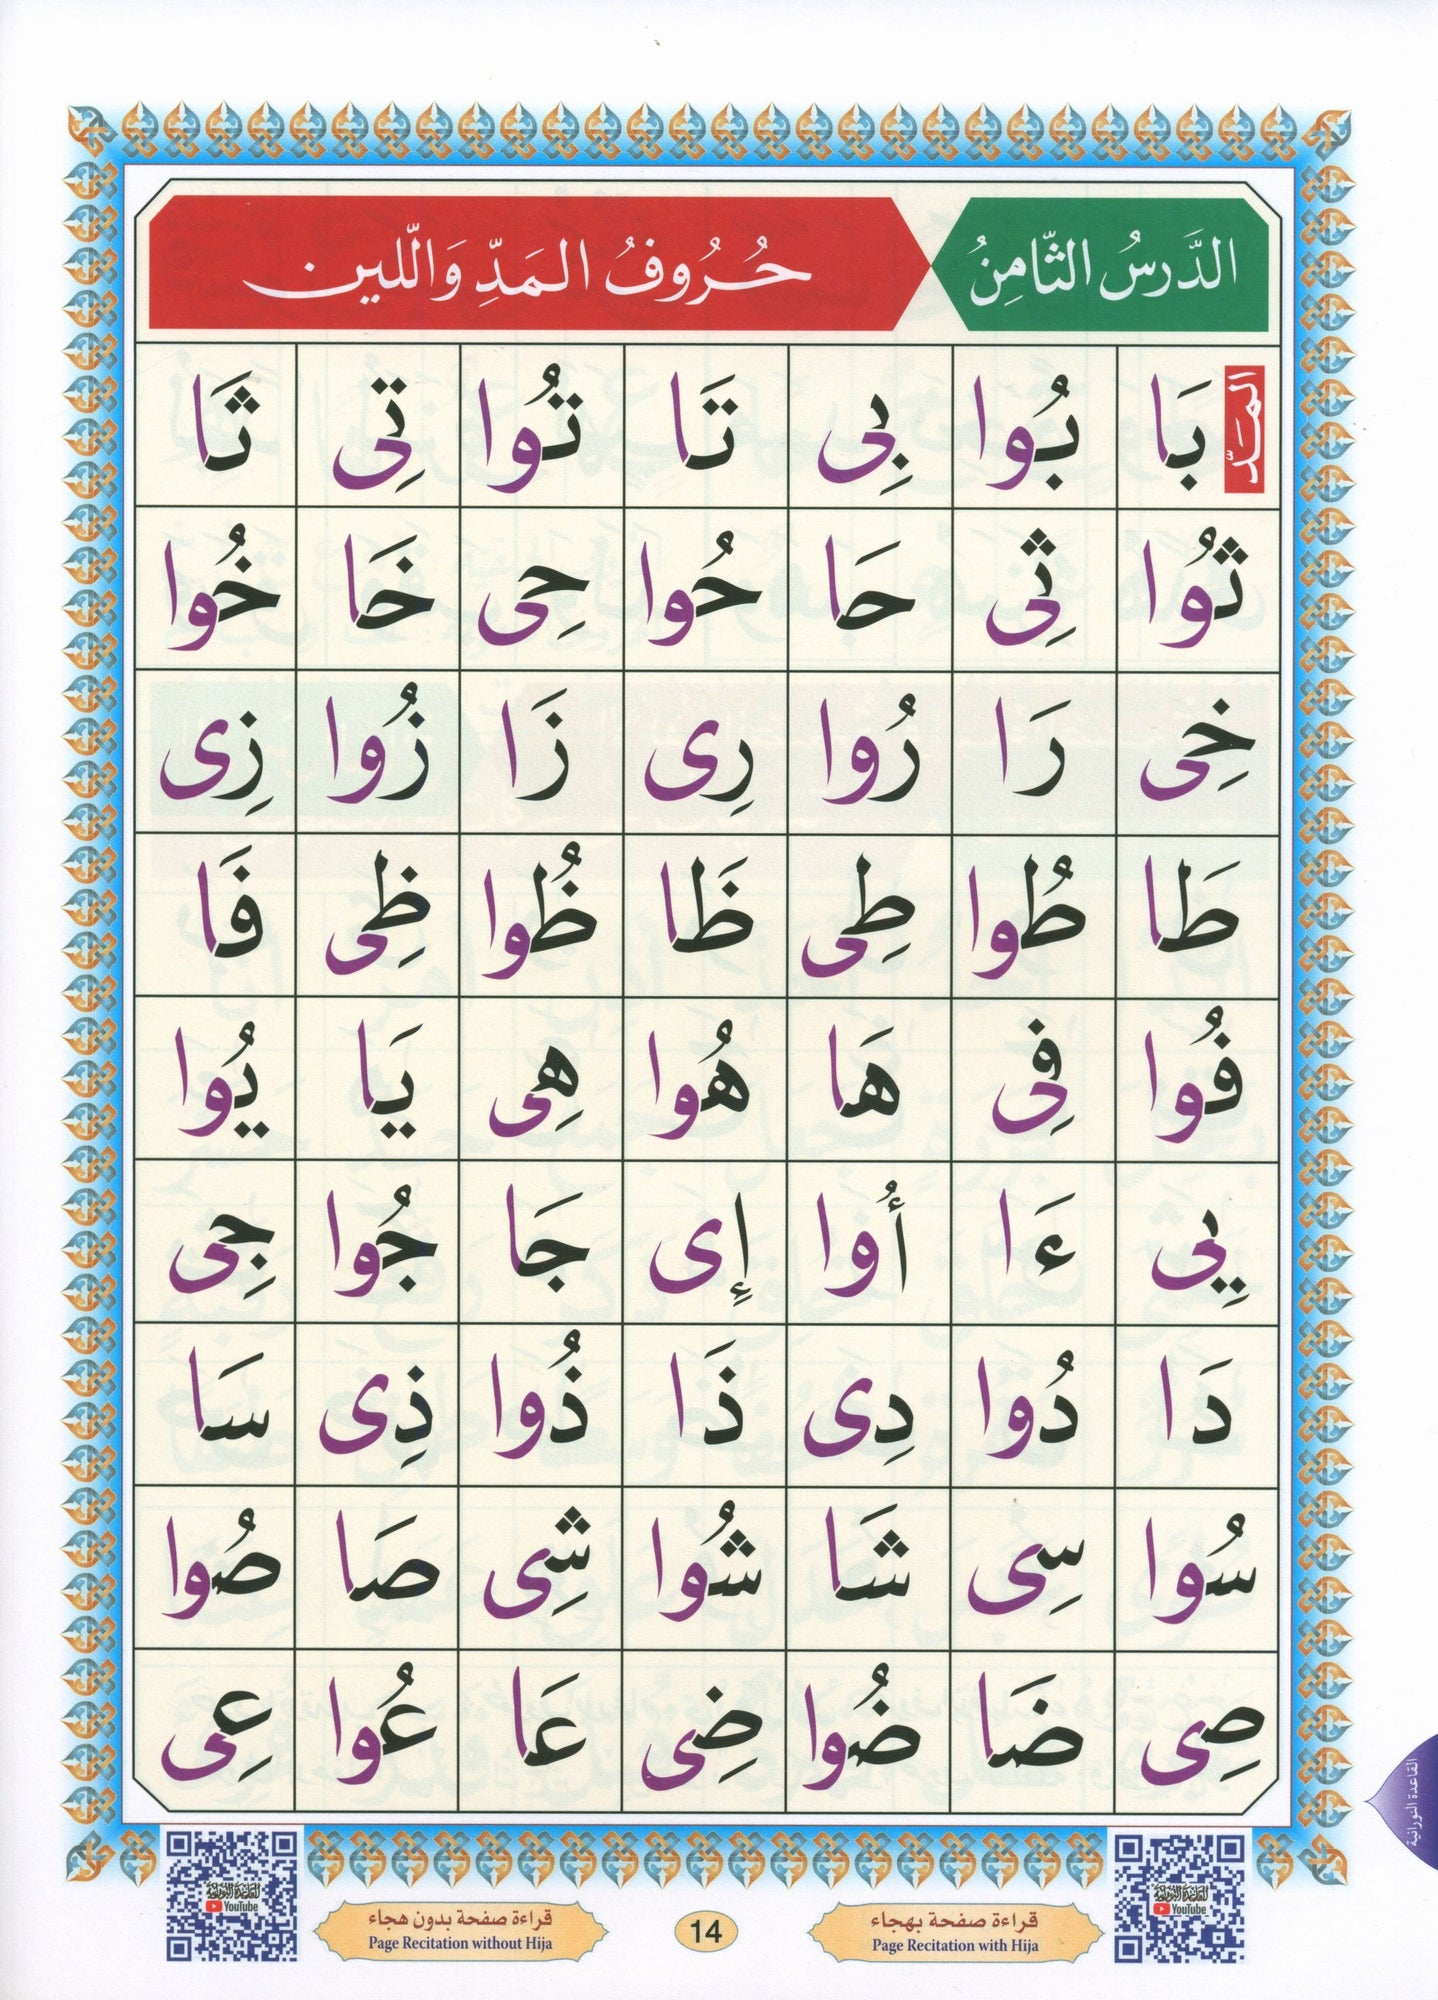 الدَّرسُ الثَّامِنُ حُرُوفُ المَدِّ وَاللّين
المَدّ
بَا بُوا بِى تَا تُوا تِى ثَا
ثُوا ثِى حَا حُوا حِى خَا خُوا
خِى رَا رُوا رِى زَا زُوا زِى
طَا طُوا طِى ظَا ظُوا ظِى فَا
فُوا فِى هَا هُوا هِى يَا يُوا
يِى ءَا أُوا إِى جَا جُوا جِى
دَا دُوا دِى ذَا ذُوا ذِى سَا
سُوا سِى شَا شُوا شِى صَا صُوا
صِى ضَا ضُوا ضِى عَا عُوا عِى
القاعدة النورانية
القاعدة النورانية
YouTube
قراءة صفحة بهجاء
Page Recitation with Hija
14
قراءة صفحة بدون هجاء
Page Recitation without Hija
القاعدة النورانية
YouTube